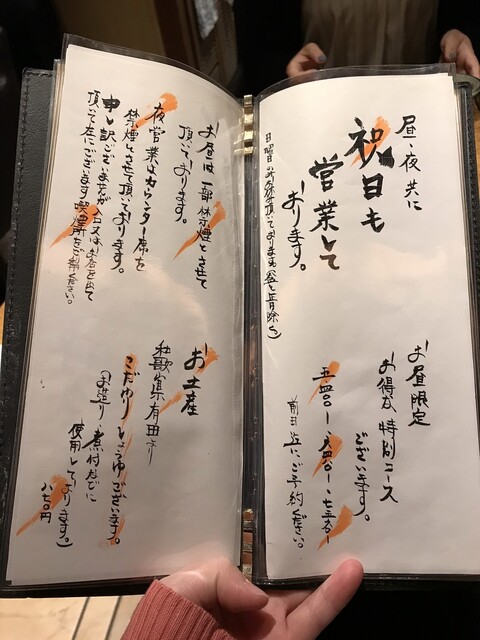 昼・夜共に
祝日も
営業して
おります。
日曜のみお休み頂いております(盆と正月除く)
お昼限定
お得な特別コース
ございます。
前日迄にご予約ください。
お昼は一部禁煙とさせて
頂いております。
夜営業はカウンター席を
禁煙とさせて頂いております。
申し訳ございませんが
頂いて左にございます喫煙所をご利用ください。
お土産
和歌山県有田より
こだわりしょうゆございます。
(お造り・煮付などに
使用しております。)
八七〇円